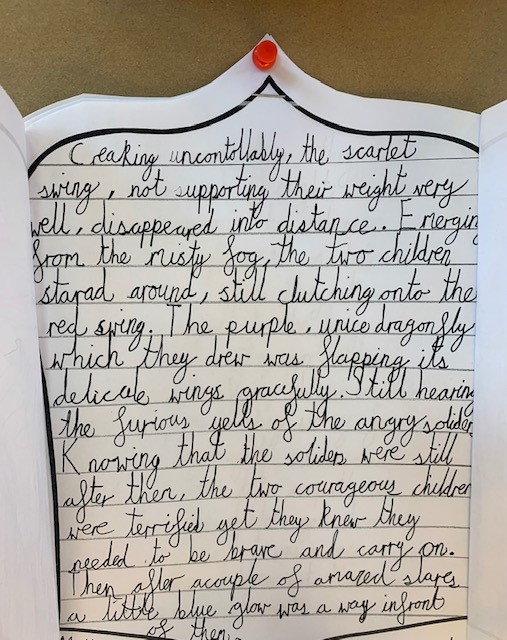 Creaking uncontollably, the scarlet
swing, not supporting their weight very
well, disappeared into distance. Emerging
from the misty fog, the two children
starad around, still clutching onto the
red swing. The purple, unice dragonfly
which they drew was flapping its
delicate wings gracefully. Still hearing
the furious yells of the angry soliders
Knowing that the soliders were still
after then, the two courageous children
were terrified yet they knew they
needed to be brave and carry on.
Then after acouple of amazed stares
a little blue glow was a way infront
of them.